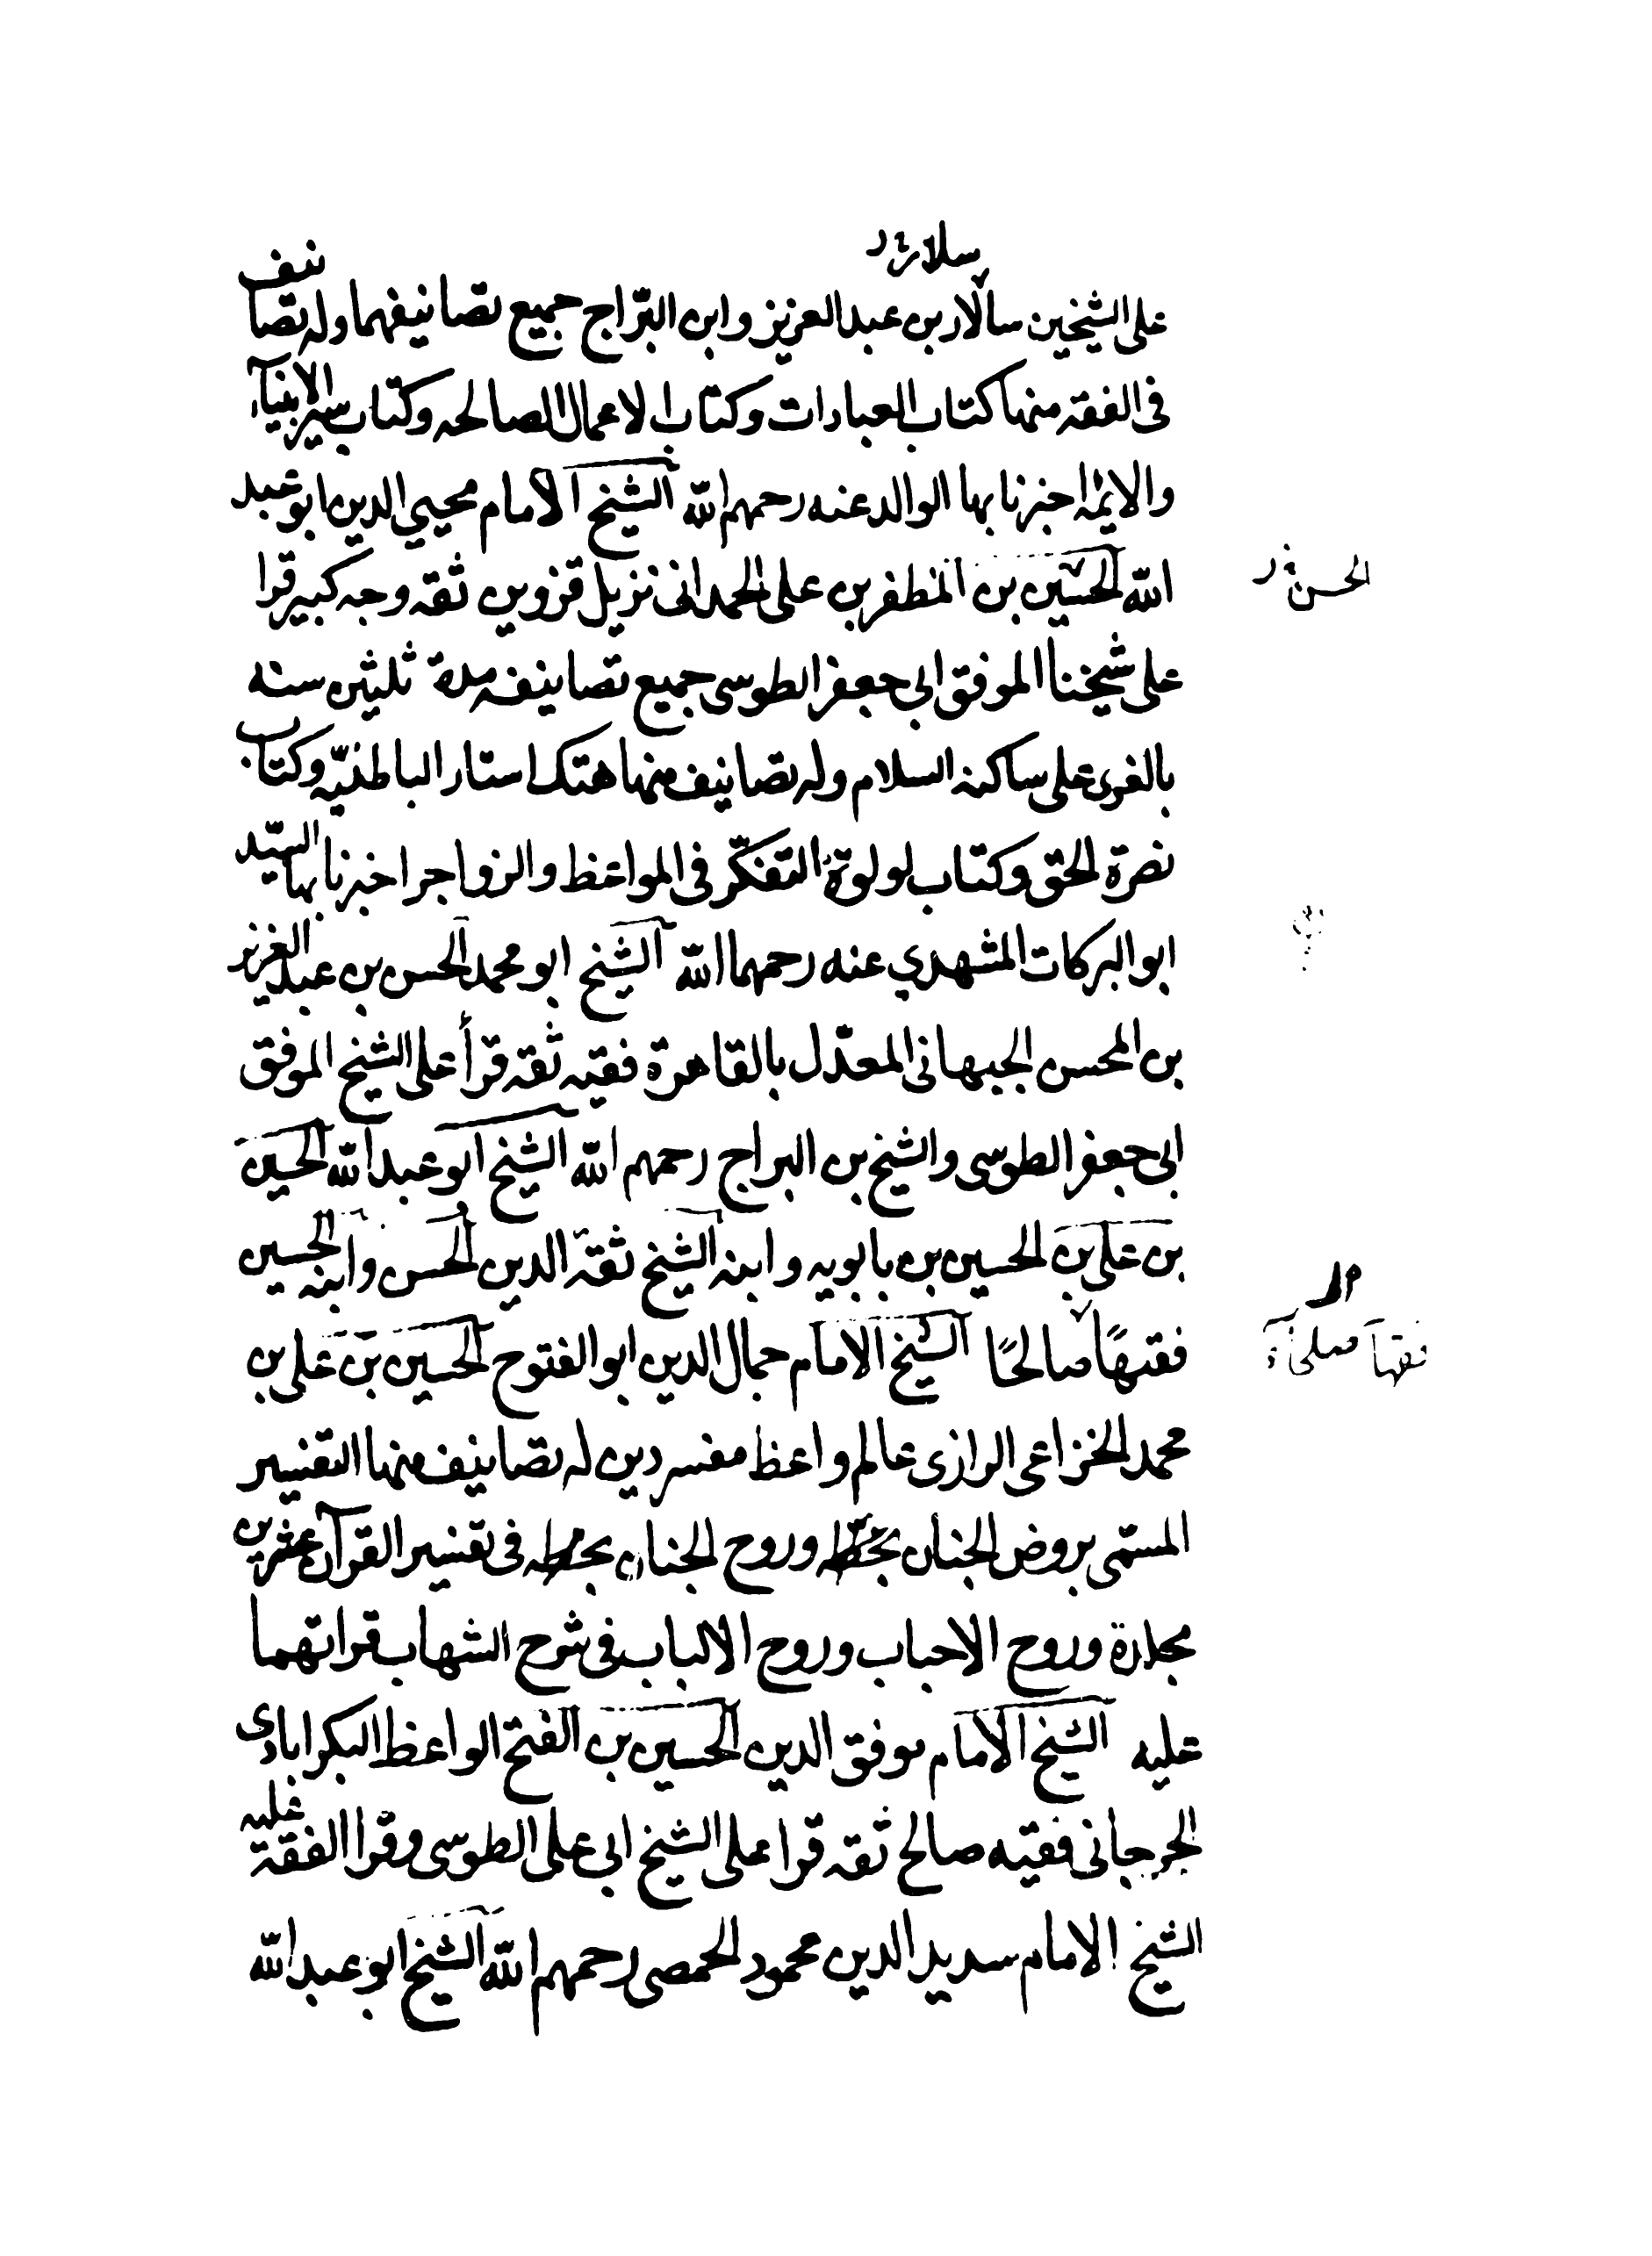 سلار نخ
على الشيخين سالار بن عبد العزيز وابن البرّاج جميع تصانيفهما وله تصانيف
فى الفقه منها كتاب العبادات وكتاب الاعمال الصالحه وكتاب سير الانبيآء
والائمه اخبرنا بها الوالد عنه رحمهم الله الشيخ الامام محيي الدين ابو عبد
الله الحسين بن المظفر بن على الحمدانى نزيل قزوين ثقه وجه كبير قرا
الحسن
على شيخنا الموفق ابي جعفر الطوسى جميع تصانيفه مدة ثلثين سنه
بالغرى على ساكنه السلام وله تصانيف منها هتك استار الباطنيّه وكتاب
نصرة الحق وكتاب لولوة التفكّر فى المواعظ والزواجر اخبرنا بها السيّد
ابو البركات المشهدي عنه رحمهما الله الشيخ ابو محمد الحسن بن عبد العزيز
بن المحسن الجبهانى المعدّل بالقاهرة فقيه ثقه قرأ على الشيخ الموفق
ابى جعفر الطوسى والشيخ بن البراج رحمهم الله الشيخ ابو عبد الله الحسين
بن على بن الحسين بن بابويه وابنه الشيخ ثقة الدين الحسن وابنه الحسين
فقيهًا صالحًا الشيخ الامام جمال الدين ابو الفتوح الحسين بن على بن
فقهآء صلحآء
محمد الخزاعى الرازى عالم واعظ مفسر دين له تصانيف منها التفسير
المسمّى بروض الجنان بخطّه وروح الجنان بخطه فى تفسير القرآن عشرين
مجلدة وروح الاحباب وروح الالباب فى شرح الشهاب قراتهما
عليه الشيخ الامام موفق الدين الحسين بن الفتح الواعظ البكرابادى
الجرجانى فقيه صالح ثقه قرا على الشيخ ابى على الطوسى وقرا الفقه عليه
الشيخ الامام سديد الدين محمود الحمصى رحمهم الله الشيخ ابو عبد الله